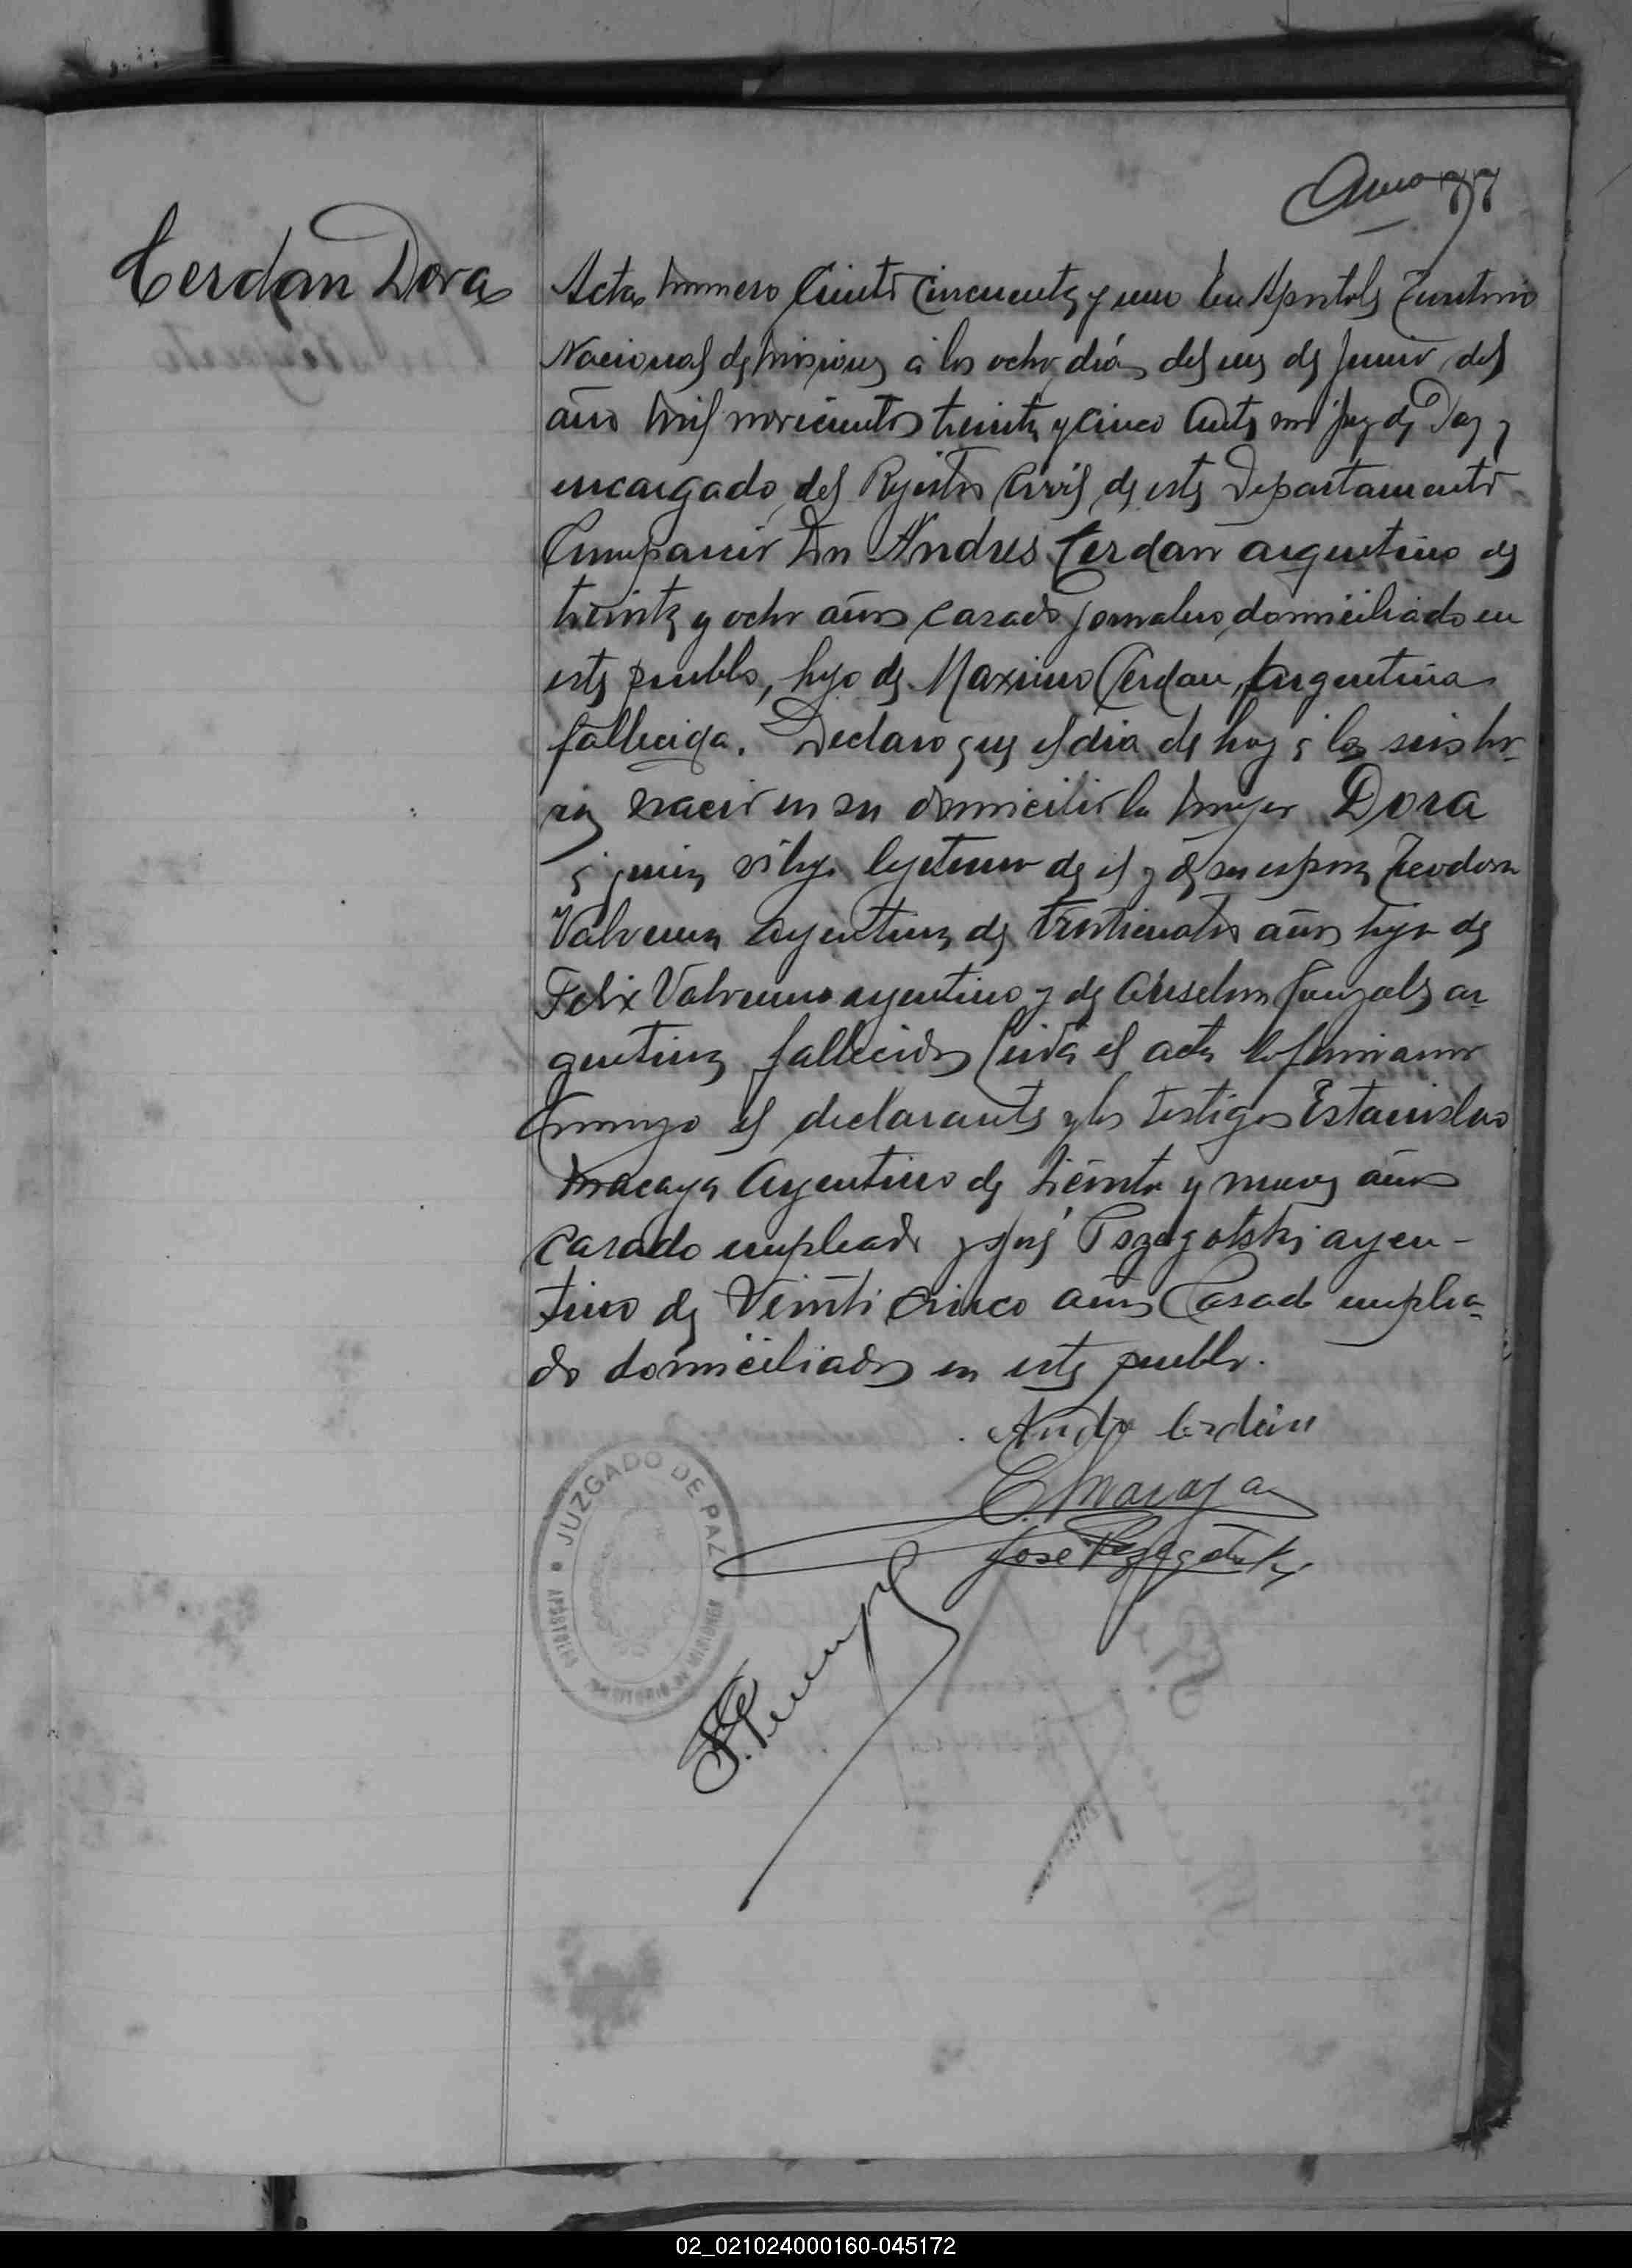 Cerdan Dora
Acta numero Ciento Cincuenta y uno En Apostoles Territorio
Nacional de Misiones a los ocho dias del mes de Junio del
año mil novecientos treinta y cinco Ante mi Juez de Paz y
encargado del Rejistro Civil de este Departamento
Comparecio Don Andres Cerdan argentino de
treinta y ocho años casado jornalero domiciliado en
este pueblo, hijo de Maxima Cerdan, Argentina
fallecida. Declaro que el dia de hoy a las seis ho-
ras nacio en su domicilio la mujer Dora
que es hija lejitima de el y de su esposa Teodora
Valenzuela argentina de años hija de
Felix argentino y de Anselma Gonzales ar
gentina fallecidos Leida el acta la firmaron
Conmigo el declarante y los testigos Estanislao
Macaya Argentino de treinta y nueve años
casado empleado y José argen-
tino de Veinti Cinco años Casado emplea-
do domiciliados en este pueblo.
Andre Cerdan
E. Macaya
Jose
JUZGADO DE PAZ
APÓSTOLES TERRITORIO DE MISIONES
02_021024000160-045172